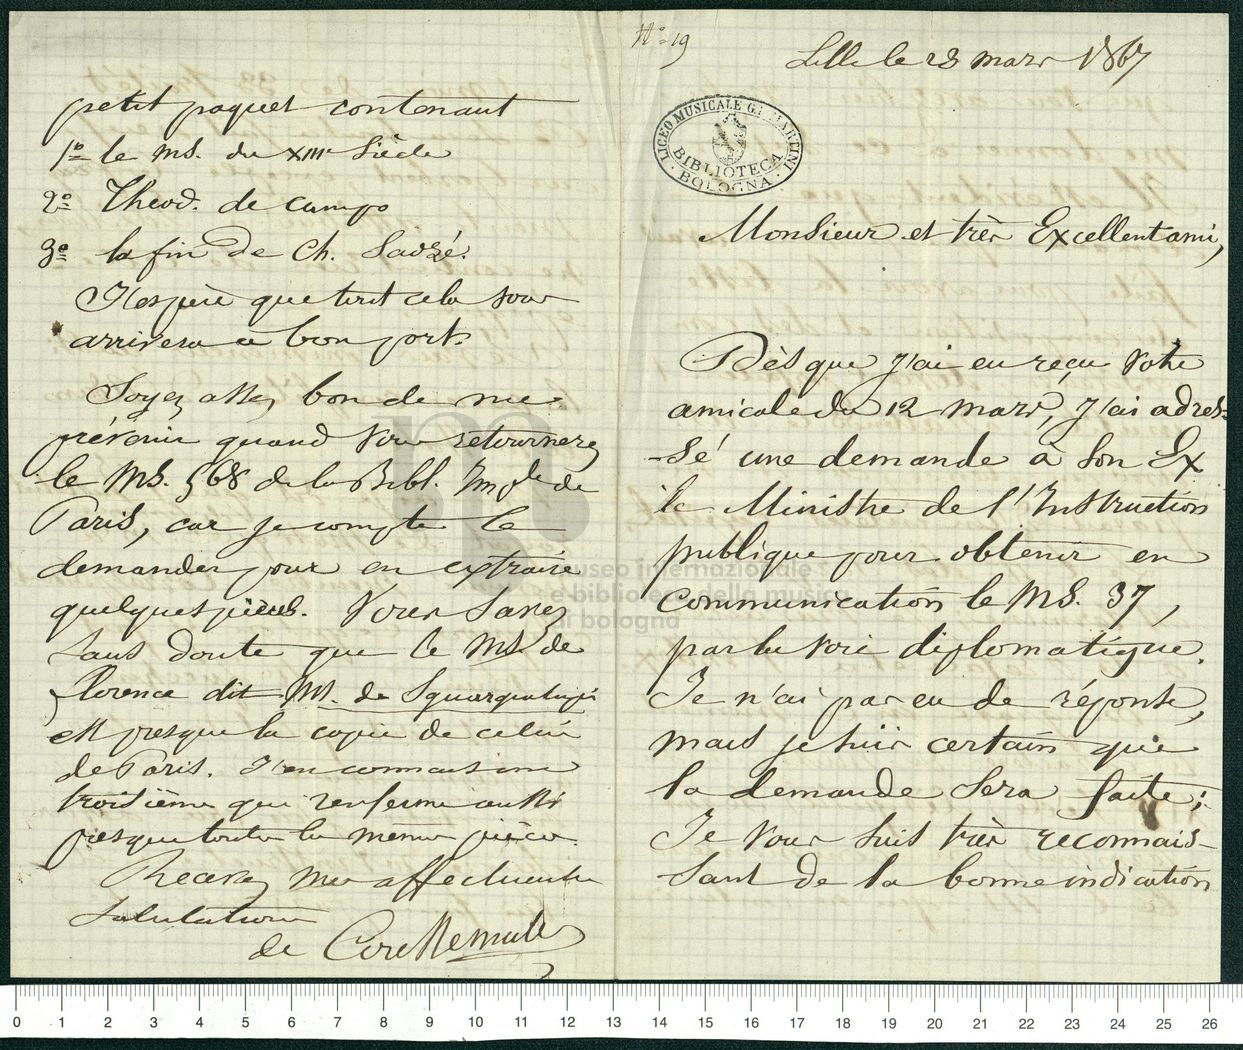 N.º 19
Lille le 28 mars 1867
LICEO MUSICALE G. B. MARTINI
BIBLIOTECA
BOLOGNA
Monsieur et très Excellent ami,
Dès que j'ai eu reçu votre
amicale du 12 mars, j'ai adres-
-sé une demande à Son Ex
le Ministre de l'Instruction
publique pour obtenir en
communication le MS. 37,
par la voie diplomatique.
Je n'ai pas eu de réponse,
mais je suis certain que
la demande sera faite;
Je vous suis très reconnais-
sant de la bonne indication
petit paquet contenant
1º le ms. du XIIIe Siècle
2º Theod. de campo
3º la fin de Ch.
J'espère que tout cela vous
arrivera à bon port.
Soyez assez bon de me
prévenir quand vous retournerez
le MS. 568 de la Bibl. Imple de
Paris, car je compte le
demander pour en extraire
quelques pièces. Vous savez
sans doute que le MS. de
florence dit MS. de Squarcialupi
est presque la copie de celui
de Paris. J'en connais un
troisième qui renferme aussi
presque toutes les mêmes pièces.
Recevez mes affectueuses
salutations
de Coussemaker
museo internazionale
e biblioteca della musica
di bologna
0 1 2 3 4 5 6 7 8 9 10 11 12 13 14 15 16 17 18 19 20 21 22 23 24 25 26